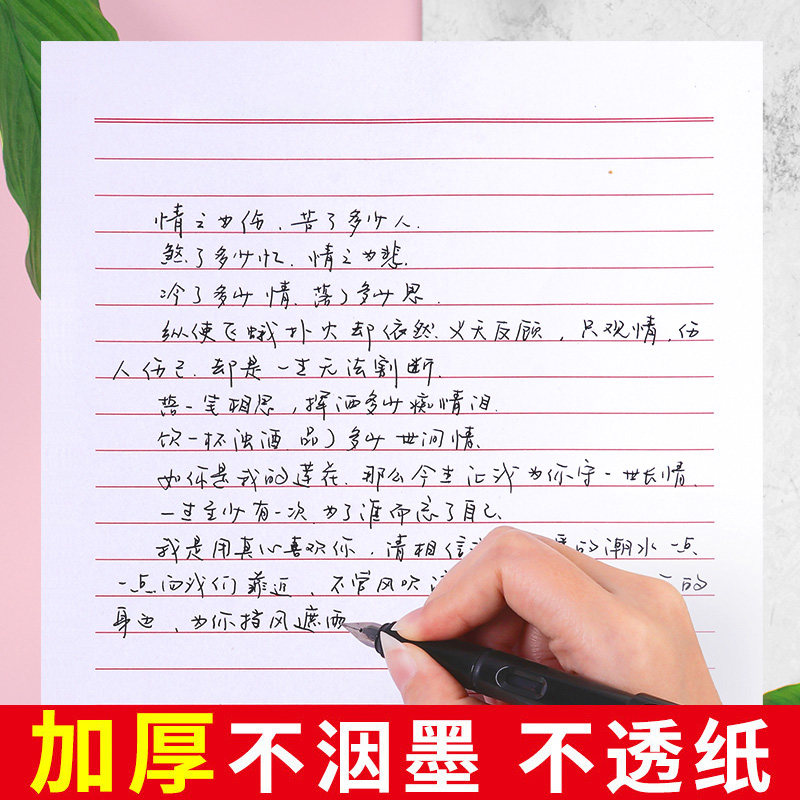 情之为伤，苦了多少人.
煞了多少忆.情之为悲.
冷了多少情.落了多少思.
纵使飞蛾扑火却依然.义无反顾，只观情，伤
人伤己.却是一生无法割断.
落一笔相思，挥洒多少痴情泪.
饮一杯浊酒.品了多少世间情.
如你是我的莲花.那么今生让我为你守一世长情.
一生至少有一次.为了谁而忘了自己.
我是用真心喜欢你，请相信 的潮水一点
一点向我们靠近，不管风吹 的
身边，为你挡风遮雨
加厚不洇墨 不透纸